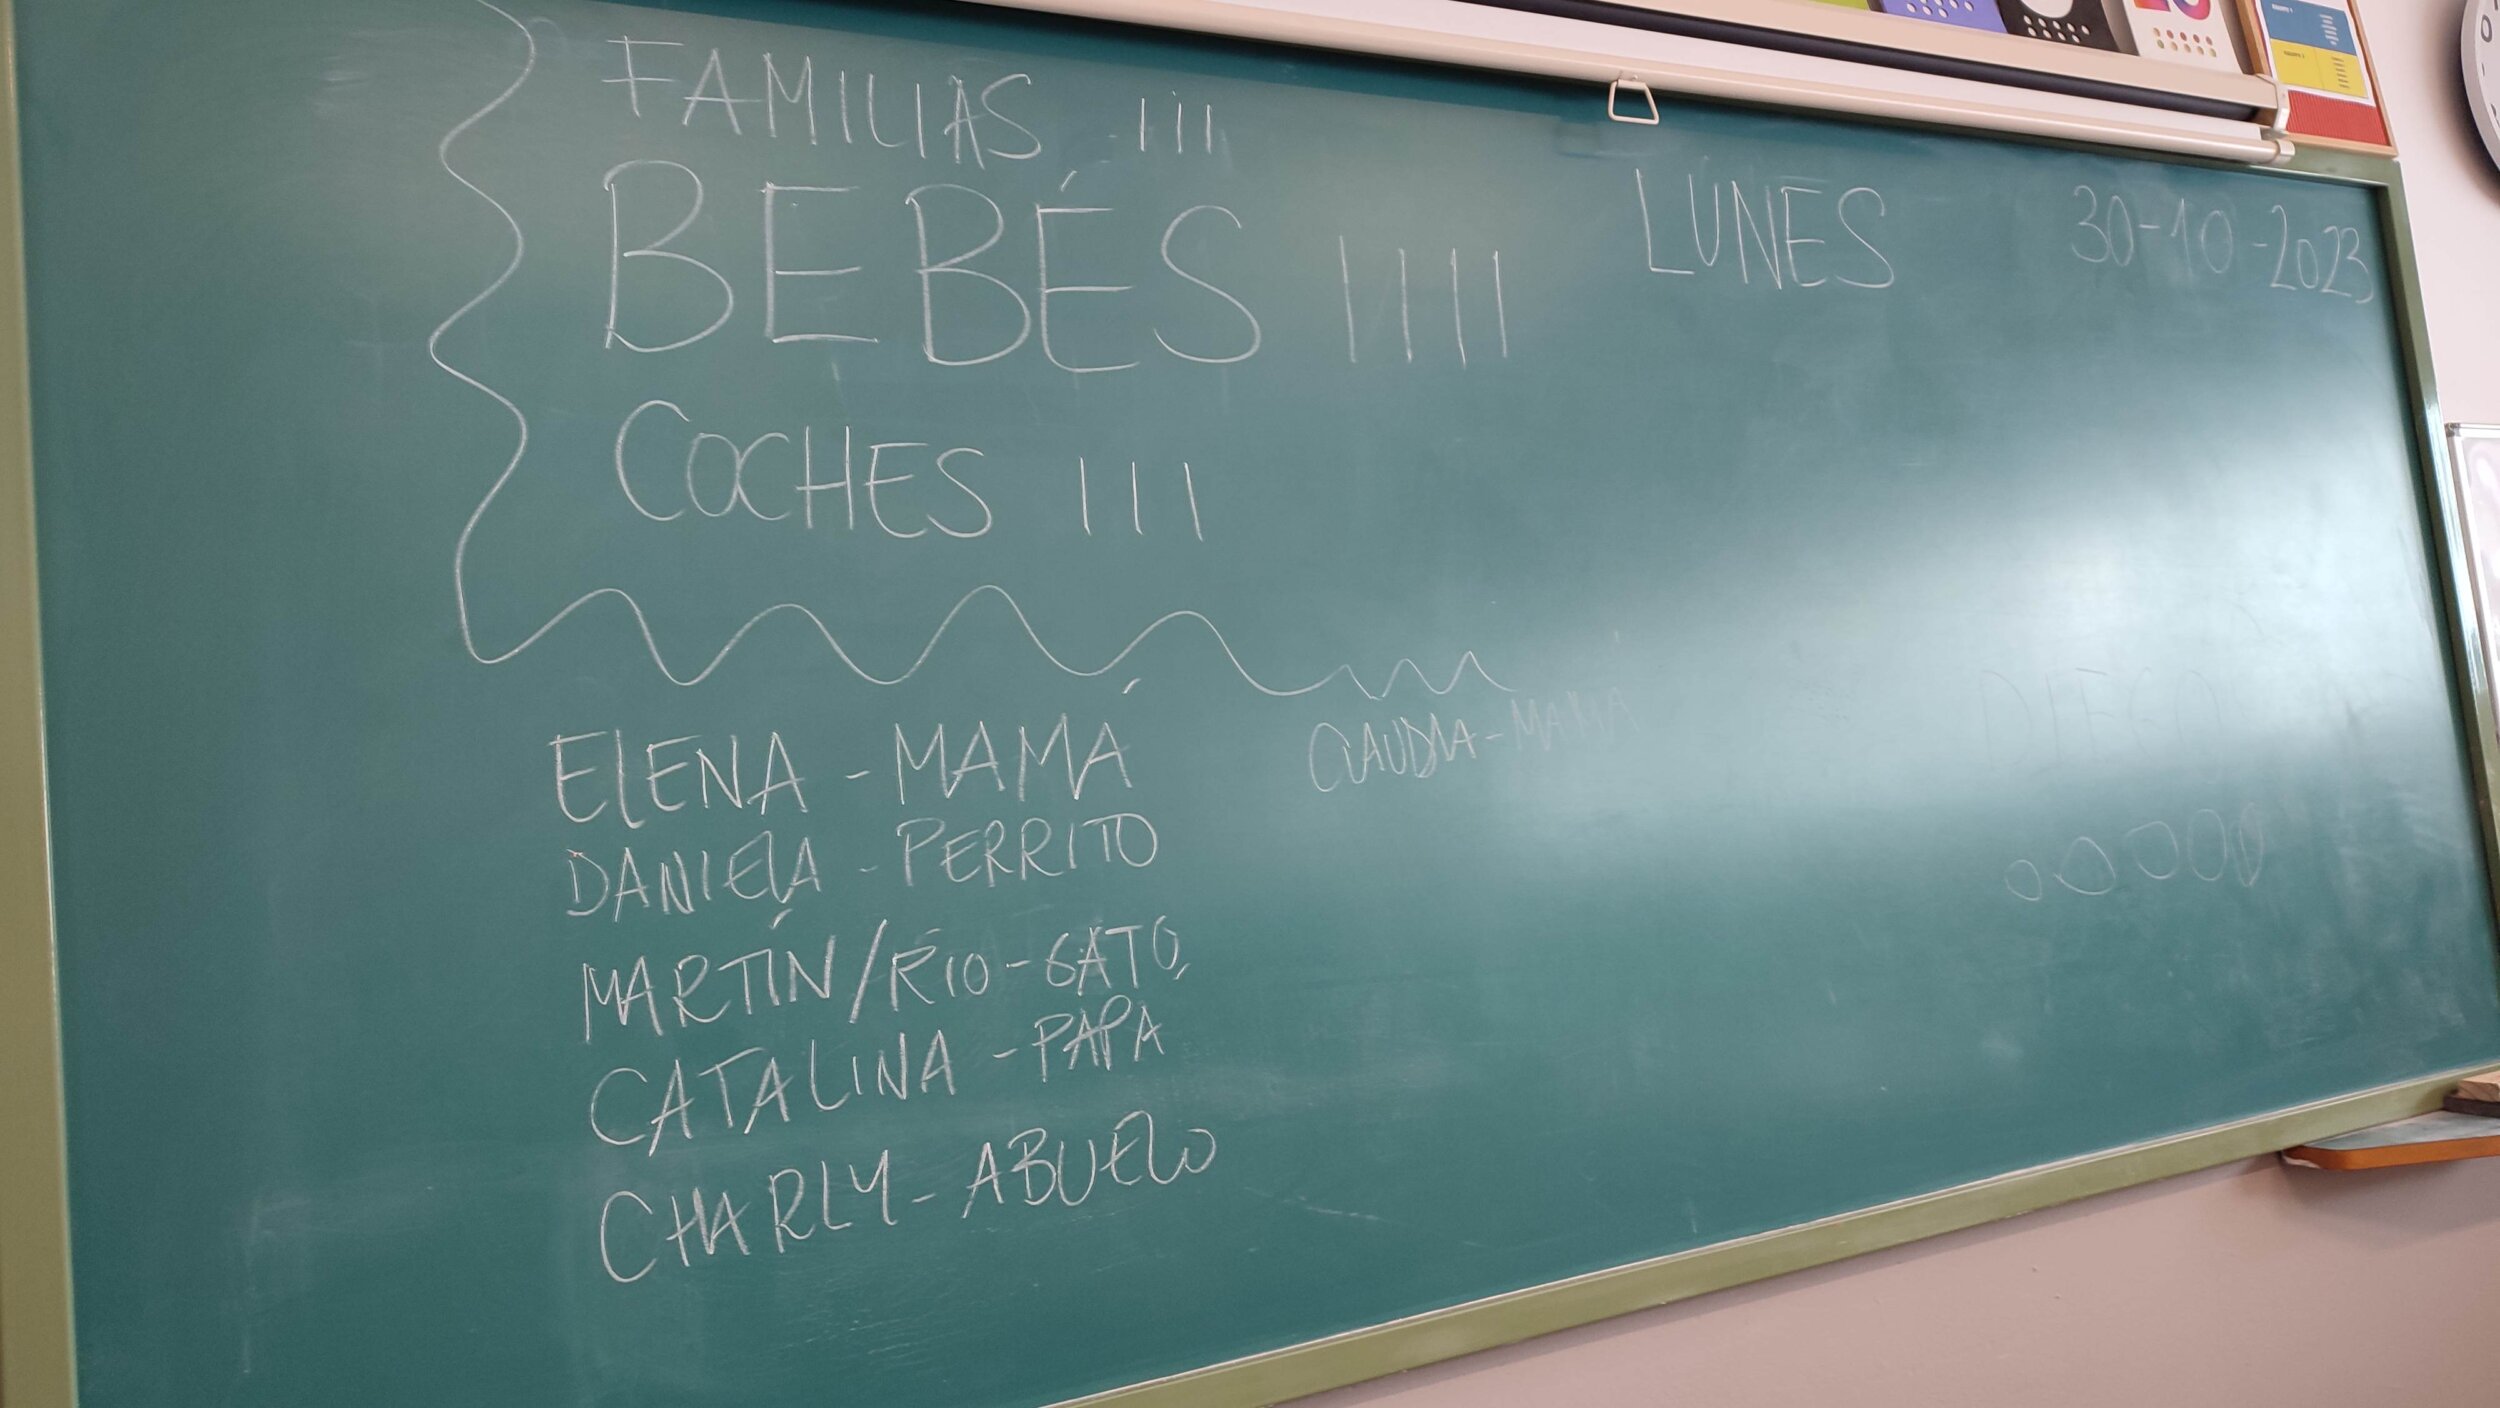 FAMILIAS III
BEBÉS IIII
COCHES III
LUNES 30-10-2023
ELENA - MAMÁ
CLAUDIA - MAMÁ
DANIELA - PERRITO
MARTÍN/RÍO - GATO
CATALINA - PAPA
CHARLY - ABUELO
DIEGO